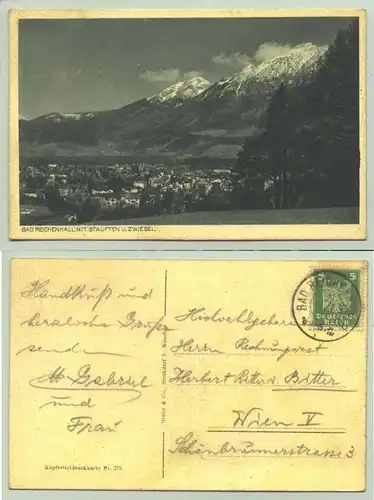 BAD REICHENHALL MIT STAUFFEN U. ZWIESEL.
Handkuß und
herzliche Grüße
sende
M. Gabriel
und
Frau
Kupfertiefdruckkarte Nr. 273
BAD
5
Deutsches
Reich
Hochwohlgeboren
Herrn Rechnungsrat
Herbert Ritter v. Bitter
Wien V
Schönbrunnerstraße 3